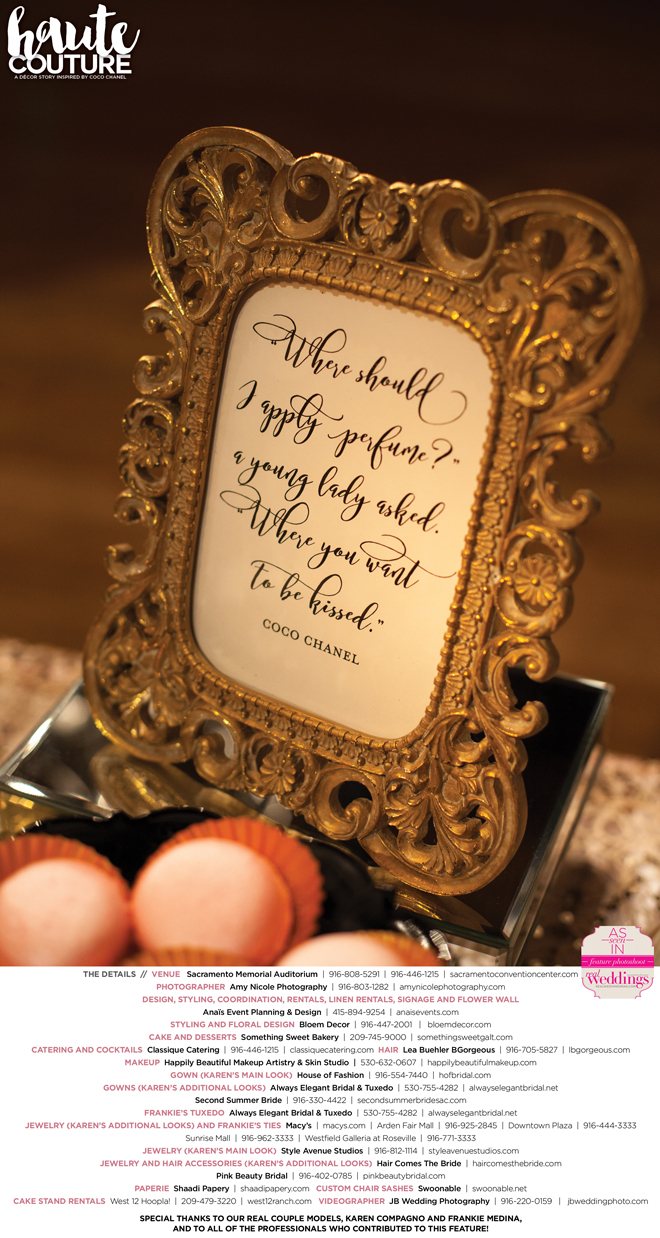 haute
COUTURE
A DÉCOR STORY INSPIRED BY COCO CHANEL
"Where should
I apply perfume?"
a young lady asked.
"Where you want
to be kissed."
COCO CHANEL
AS
seen
IN
feature photoshoot
real
weddings
THE DETAILS // VENUE Sacramento Memorial Auditorium | 916-808-5291 | 916-446-1215 | sacramentoconventioncenter.com
PHOTOGRAPHER Amy Nicole Photography | 916-803-1282 | amynicolephotography.com
DESIGN, STYLING, COORDINATION, RENTALS, LINEN RENTALS, SIGNAGE AND FLOWER WALL
Anaïs Event Planning & Design | 415-894-9254 | anaisevents.com
STYLING AND FLORAL DESIGN Bloem Decor | 916-447-2001 | bloemdecor.com
CAKE AND DESSERTS Something Sweet Bakery | 209-745-9000 | somethingsweetgalt.com
CATERING AND COCKTAILS Classique Catering | 916-446-1215 | classiquecatering.com HAIR Lea Buehler BGorgeous | 916-705-5827 | lbgorgeous.com
MAKEUP Happily Beautiful Makeup Artistry & Skin Studio | 530-632-0607 | happilybeautifulmakeup.com
GOWN (KAREN'S MAIN LOOK) House of Fashion | 916-554-7440 | hofbridal.com
GOWNS (KAREN'S ADDITIONAL LOOKS) Always Elegant Bridal & Tuxedo | 530-755-4282 | alwayselegantbridal.net
Second Summer Bride | 916-330-4422 | secondsummerbridesac.com
FRANKIE'S TUXEDO Always Elegant Bridal & Tuxedo | 530-755-4282 | alwayselegantbridal.net
JEWELRY (KAREN'S ADDITIONAL LOOKS) AND FRANKIE'S TIES Macy's | macys.com | Arden Fair Mall | 916-925-2845 | Downtown Plaza | 916-444-3333
Sunrise Mall | 916-962-3333 | Westfield Galleria at Roseville | 916-771-3333
JEWELRY (KAREN'S MAIN LOOK) Style Avenue Studios | 916-812-1114 | styleavenuestudios.com
JEWELRY AND HAIR ACCESSORIES (KAREN'S ADDITIONAL LOOKS) Hair Comes The Bride | haircomesthebride.com
Pink Beauty Bridal | 916-402-0785 | pinkbeautybridal.com
PAPERIE Shaadi Papery | shaadipapery.com CUSTOM CHAIR SASHES Swoonable | swoonable.net
CAKE STAND RENTALS West 12 Hoopla! | 209-479-3220 | west12ranch.com VIDEOGRAPHER JB Wedding Photography | 916-220-0159 | jbweddingphoto.com
SPECIAL THANKS TO OUR REAL COUPLE MODELS, KAREN COMPAGNO AND FRANKIE MEDINA,
AND TO ALL OF THE PROFESSIONALS WHO CONTRIBUTED TO THIS FEATURE!